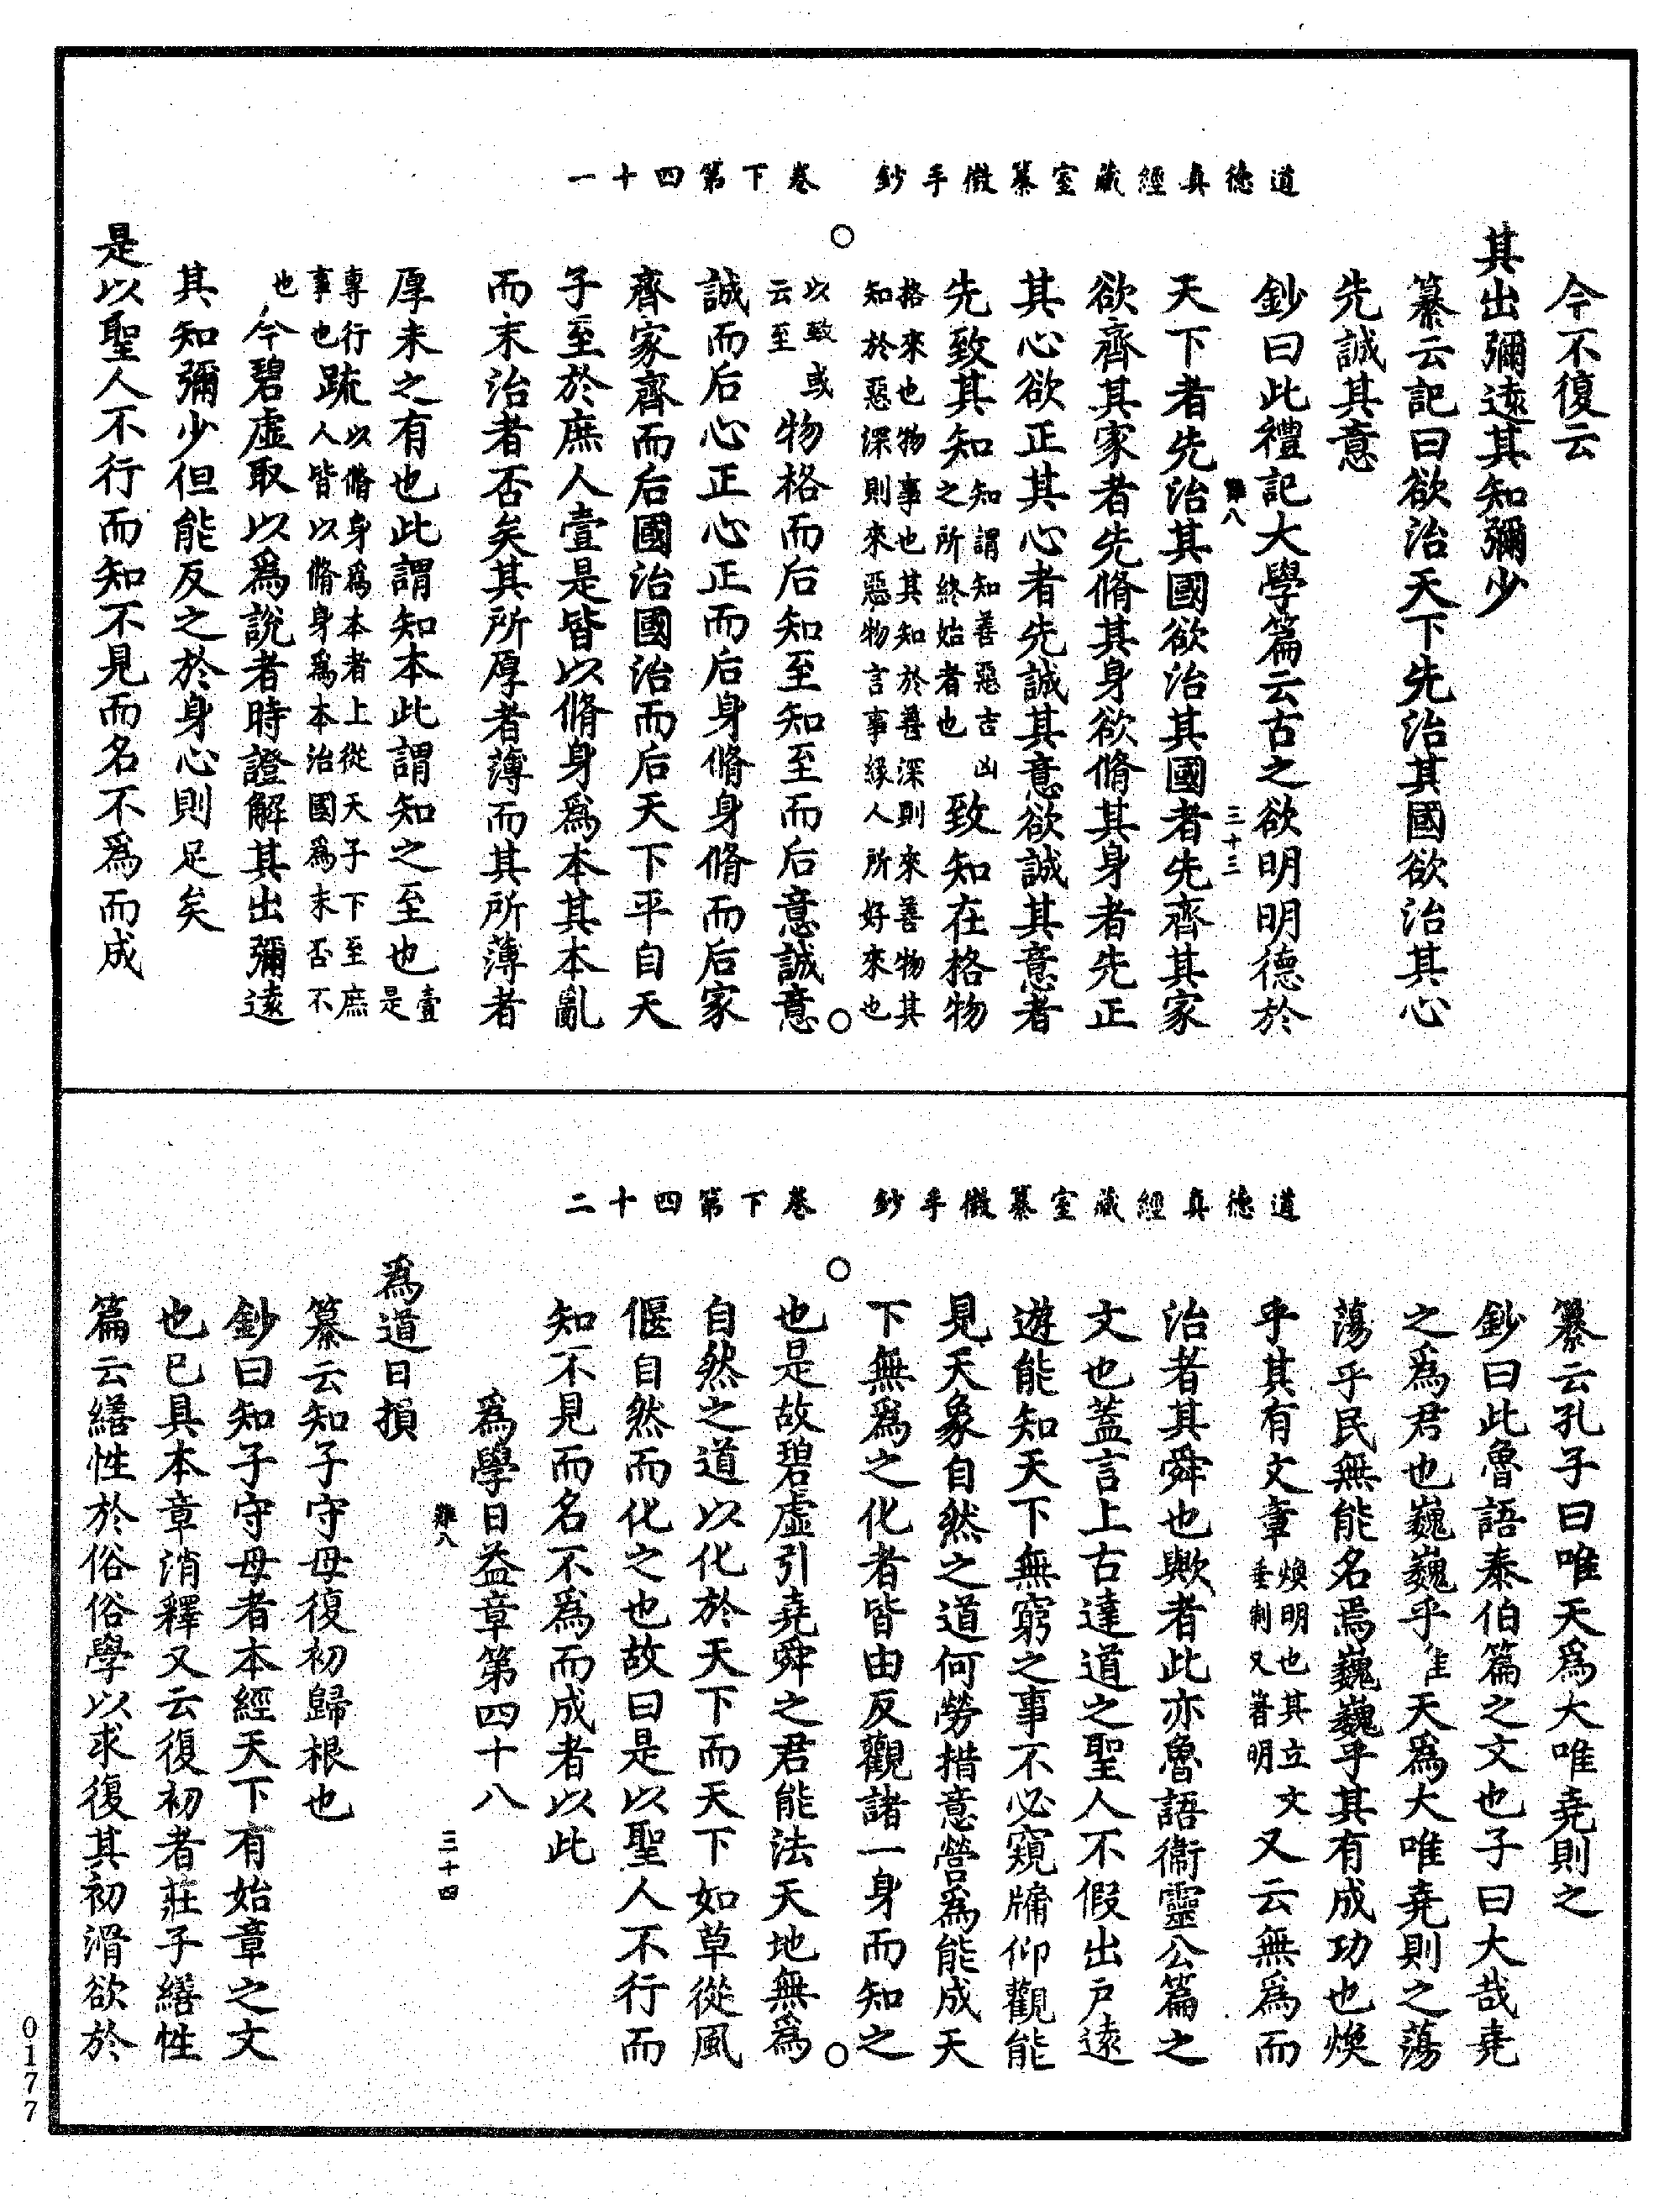 道德真經藏室纂微手鈔　卷下第四十一
今不復云
其出彌遠其知彌少
纂云記曰欲治天下先治其國欲治其心
先誠其意
鈔曰此禮記大學篇云古之欲明明德於
難八　三十三
天下者先治其國欲治其國者先齊其家
欲齊其家者先脩其身欲脩其身者先正
其心欲正其心者先誠其意欲誠其意者
先致其知知謂知善惡吉凶之所終始者也致知在格物
格來也物事也其知於善深則來善物其
知於惡深則來惡物言事緣人所好來也
以致或云至物格而后知至知至而后意誠意
誠而后心正心正而后身脩身脩而后家
齊家齊而后國治國治而后天下平自天
子至於庶人壹是皆以脩身爲本其本亂
而末治者否矣其所厚者薄而其所薄者
厚未之有也此謂知本此謂知之至也壹是
專行以脩身爲本者上從天子下至庶
事也疏人皆以脩身爲本治國爲末否不
也今碧虛取以爲說者時證解其出彌遠
其知彌少但能反之於身心則足矣
是以聖人不行而知不見而名不爲而成
道德真經藏室纂微手鈔　卷下第四十二
纂云孔子曰唯天爲大唯堯則之
鈔曰此魯語泰伯篇之文也子曰大哉堯
之爲君也巍巍乎唯天爲大唯堯則之蕩
蕩乎民無能名焉巍巍乎其有成功也煥
乎其有文章煥明也其立文垂制又著明又云無爲而
治者其舜也歟者此亦魯語衞靈公篇之
文也蓋言上古達道之聖人不假出戶遠
遊能知天下無窮之事不必窺牖仰觀能
見天象自然之道何勞措意營爲能成天
下無爲之化者皆由反觀諸一身而知之
也是故碧虛引堯舜之君能法天地無爲
自然之道以化於天下而天下如草從風
偃自然而化之也故曰是以聖人不行而
知不見而名不爲而成者以此
爲學日益章第四十八
難八　三十四
爲道日損
纂云知子守母復初歸根也
鈔曰知子守母者本經天下有始章之文
也已具本章消釋又云復初者莊子繕性
篇云繕性於俗俗學以求復其初滑欲於
0177